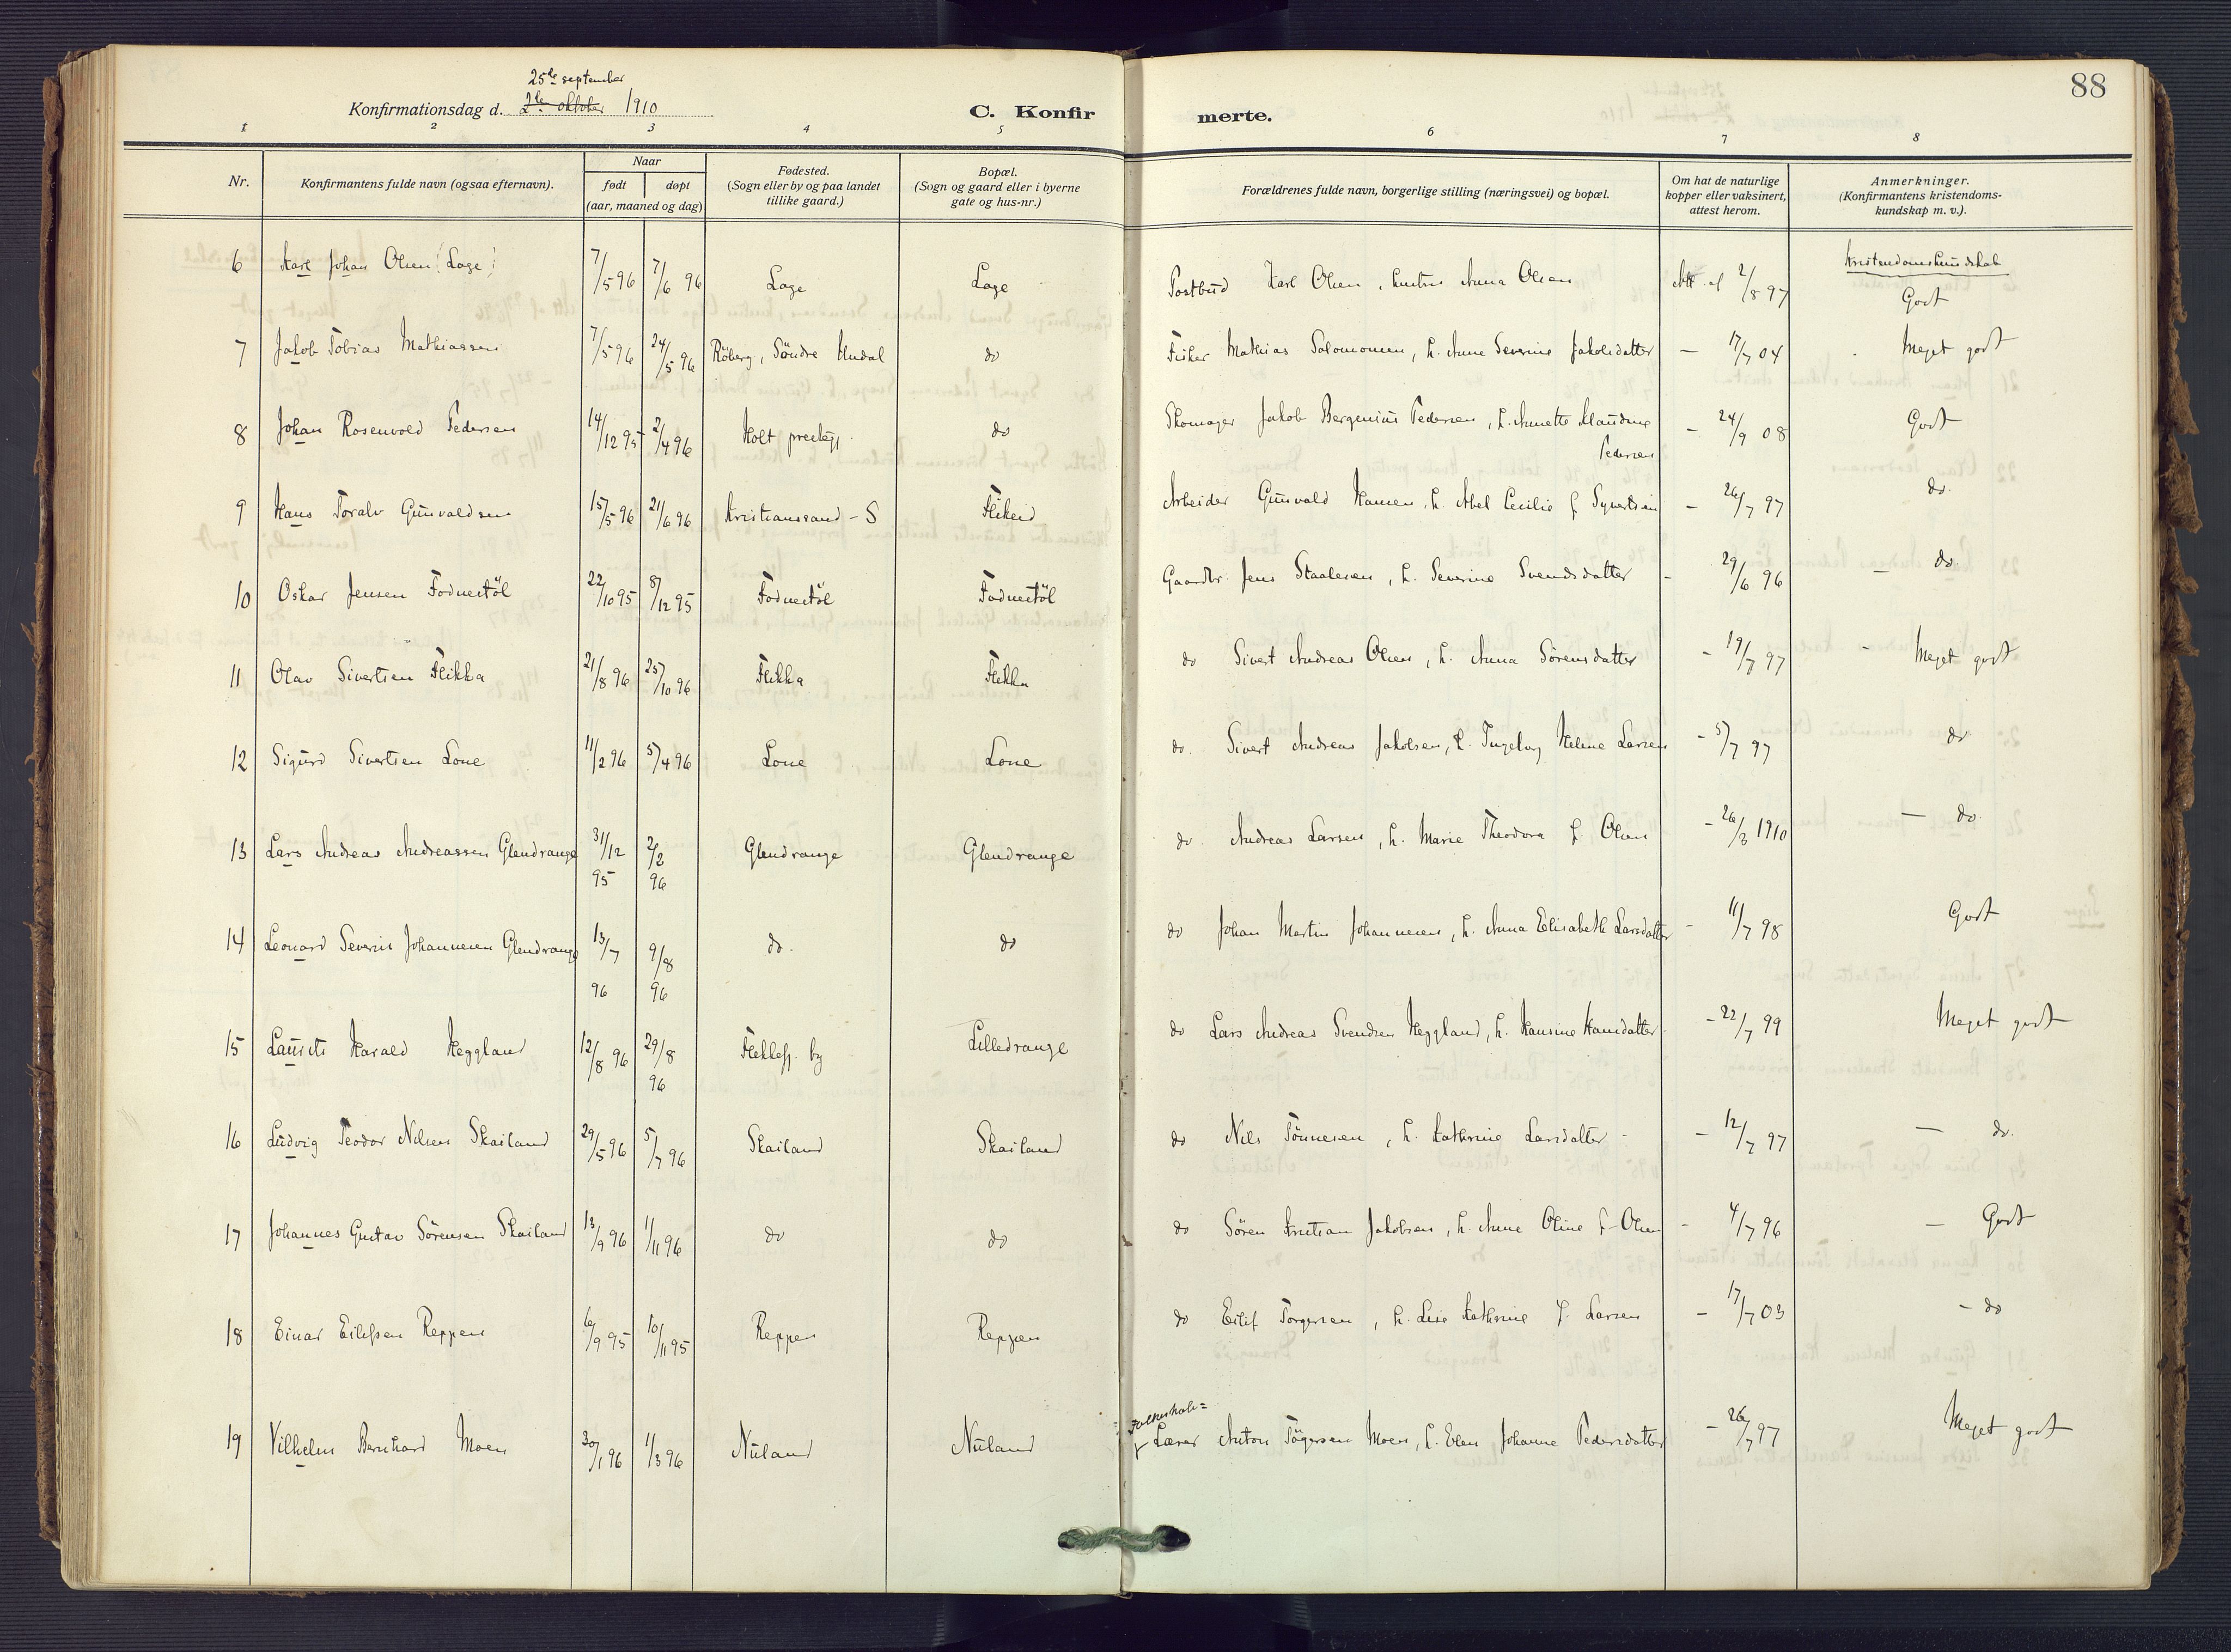 88
25de september
Konfirmationsdag d. 2den oktober 1910
C. Konfirmerte.
1 2 3 4 5 6 7 8
Nr.
Konfirmantens fulde navn (ogsaa efternavn).
Naar
født døpt
(aar, maaned og dag)
Fødested.
(Sogn eller by og paa landet
tillike gaard.)
Bopæl.
(Sogn og gaard eller i byerne
gate og hus-nr.)
Forældrenes fulde navn, borgerlige stilling (næringsvei) og bopæl.
Om hat de naturlige
kopper eller vaksinert,
attest herom.
Anmerkninger.
(Konfirmantens kristendoms-
kundskap m. v.).
Kristendomskundskab
6 Karl Johan Olsen (Loge) 7/5 96 7/6 96 Loge Loge Postbud Karl Olsen, hustru Anna Olsen Att. af 2/8 97 Godt
7 Jakob Tobias Mathiassen 7/5 96 24/5 96 Röberg, Söndre Undal do Fisker Mathias Salomonsen, h. Anne Severine Jakobsdatter — 17/7 04 Meget godt
8 Johan Rosenvold Pedersen 14/12 95 2/4 96 Holt prestegj. do Skomager Jakob Bergenius Pedersen, h. Annette Maudine
Pedersen — 24/9 08 Godt
9 Hans Toralv Gunvaldsen 15/5 96 21/6 96 Kristianssand - S Flikeid Arbeider Gunvald Hansen, h. Abel Cecilie f Syvertsen — 26/7 97 do.
10 Oskar Jensen Fodnestöl 22/10 95 8/12 95 Fodnestöl Fodnestöl Gaardbr. Jens Staalesen, h. Severine Svendsdatter - 29/6 96 — do.
11 Olav Sivertsen Flikka 21/8 96 25/10 96 Flikka Flikka do Sivert Andreas Olsen, h. Anna Sörensdatter - 19/7 97 - Meget godt
12 Sigurd Sivertsen Lone 11/2 96 5/4 96 Lone Lone do. Sivert Andreas Jakobsen, h. Ingeborg Helene Larsen - 5/7 97 do
13 Lars Andreas Andreassen Glendrange 31/12 95 2/2 96 Glendrange Glendrange do. Andreas Larsen, h. Marie Theodora f. Olsen - 26/8 1910 — do.
14 Leonard Severin Johannesen Glendrange 13/7 96 9/8 96 do. do do Johan Martin Johannesen, h. Anna Elisabeth Larsdatter - 11/7 98 Godt
15 Laurits Harald Heggland 12/8 96 29/8 96 Flekkefj. by Lilledrange do Lars Andreas Svendsen Heggland, h. Hansine Hansdatter - 22/7 99 Meget godt
16 Ludvig Teodor Nilsen Skailand 29/5 96 5/7 96 Skailand Skailand do Nils Tönnesen, h. Kathrine Larsdatter - 12/7 97 — do.
17 Johannes Gustav Sörensen Skailand 13/9 96 1/11 96 do do do Sören Kristian Jakobsen, h. Anne Oline f. Olsen - 4/7 96 — Godt
18 Einar Eilefsen Reppen 6/9 95 10/11 95 Reppen Reppen do Eilif Torgersen, h. Lise Kathrine f. Larsen - 17/7 03 - do
Folkeskole=
19 Vilhelm Bernhard Moen 30/1 96 1/3 96 Nuland Nuland Lærer Anton Tögersen Moen, h. Elen Johanne Pedersdatter - 26/7 97 Meget godt